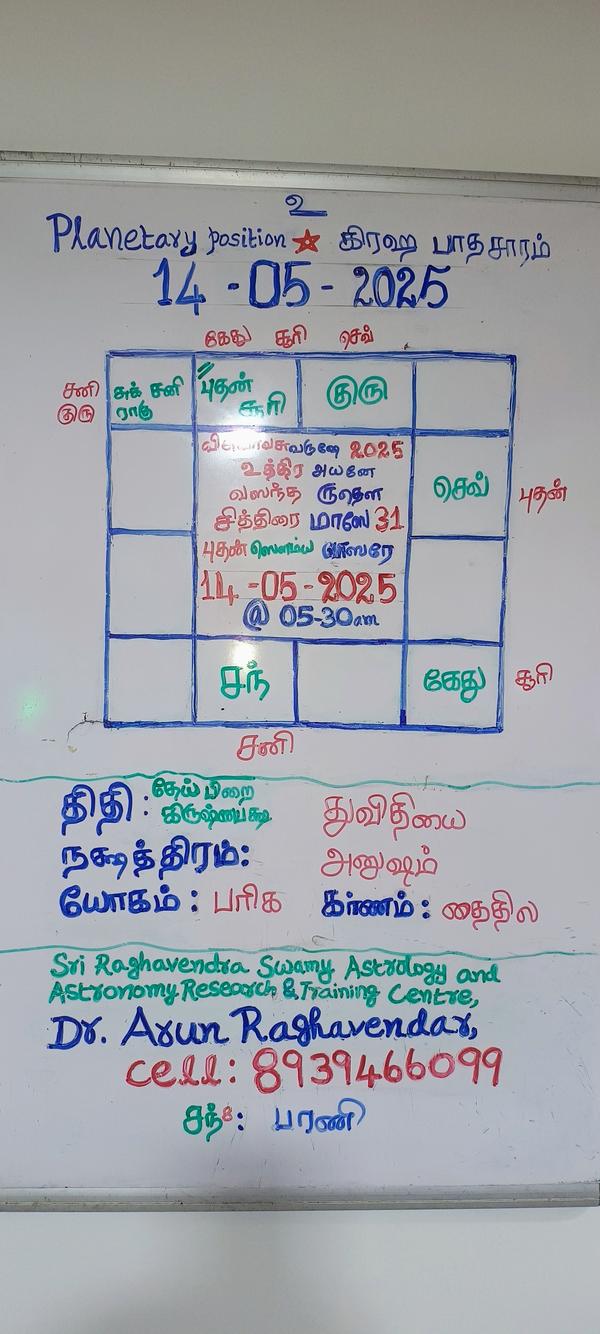 உ
Planetary position ☆ கிரஹ பாதசாரம்
14-05-2025
கேது சூரி செவ்
சனி குரு
சுக் சனி ராகு
புதன் சூரி
குரு
விசுவாவசுவருஷே 2025
உத்திர அயனே
வஸந்த ருதௌ
சித்திரை மாஸே 31
புதன் ஸௌம்ய வாஸரே
14-05-2025
@ 05-30am
செவ்
புதன்
சந்
கேது
சூரி
சனி
திதி : தேய் பிறை கிருஷ்ணபக்ஷ துவிதியை
நக்ஷத்திரம்: அனுஷம்
யோகம் : பரிக கர்ணம் : தைதில
Sri Raghavendra Swamy Astrology and
Astronomy Research & Training Centre,
Dr. Arun Raghavendar,
cell: 8939466099
சந்8: பரணி